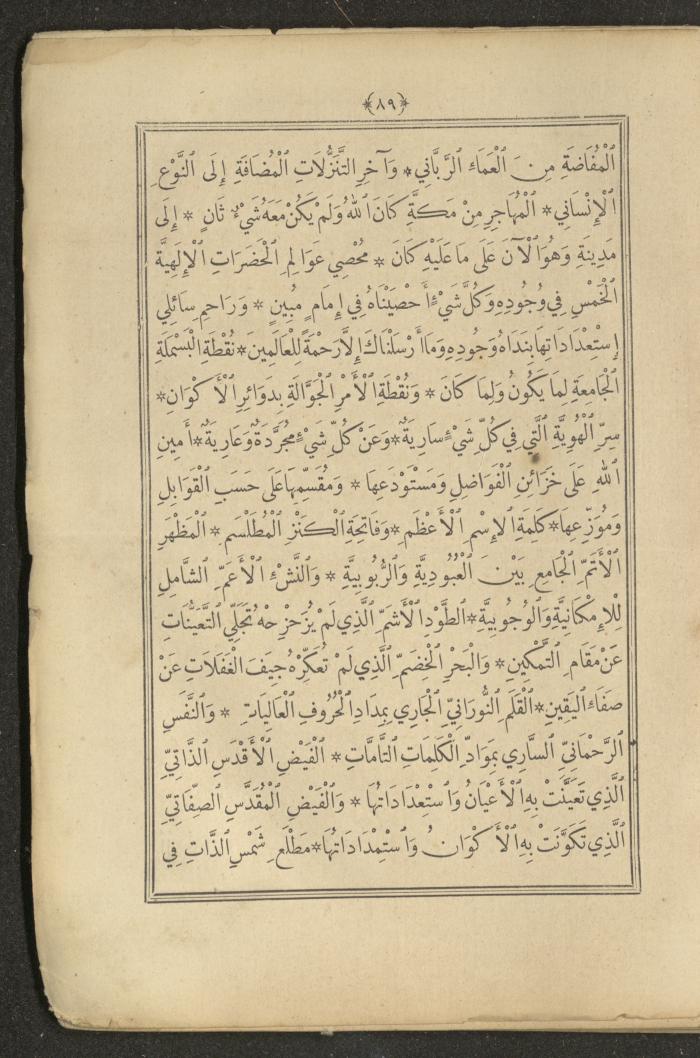 ﴿٨٩﴾
الْمُفَاضَةِ مِنَ الْعَمَاءِ الرَّبَّانِي * وَآخِرِ التَّنَزُّلَاتِ الْمُضَافَةِ إِلَى النَّوْعِ
الْإِنْسَانِي * الْمُهَاجِرِ مِنْ مَكَّةِ كَانَ اللهُ وَلَمْ يَكُنْ مَعَهُ شَيْءٌ ثَانٍ * إِلَى
مَدِينَةِ وَهُوَ الْآنَ عَلَى مَا عَلَيْهِ كَانَ * مُحْصِي عَوَالِمِ الْحَضَرَاتِ الْإِلَهِيَّةِ
الْخَمْسِ فِي وُجُودِهِ وَكُلَّ شَيْءٍ أَحْصَيْنَاهُ فِي إِمَامٍ مُبِينٍ * وَرَاحِمِ سَائِلِي
إِسْتِعْدَادَاتِهَا بِنَدَاهُ وَجُودِهِ وَمَا أَرْسَلْنَاكَ إِلَّا رَحْمَةً لِلْعَالَمِينَ * نُقْطَةِ الْبَسْمَلَةِ
الْجَامِعَةِ لِمَا يَكُونُ وَلِمَا كَانَ * وَنُقْطَةِ الْأَمْرِ الْجَوَّالَةِ بِدَوَائِرِ الْأَكْوَانِ *
سِرِّ الْهُوِيَّةِ الَّتِي فِي كُلِّ شَيْءٍ سَارِيَةٌ * وَعَنْ كُلِّ شَيْءٍ مُجَرَّدَةٌ وَعَارِيَةٌ * أَمِينِ
اللهِ عَلَى خَزَائِنِ الْفَوَاضِلِ وَمُسْتَوْدَعِهَا * وَمُقَسِّمِهَا عَلَى حَسَبِ الْقَوَابِلِ
وَمُوَزِّعِهَا * كَلِمَةِ الْإِسْمِ الْأَعْظَمِ * وَفَاتِحَةِ الْكَنْزِ الْمُطَلْسَمِ * الْمَظْهَرِ
الْأَتَمِّ الْجَامِعِ بَيْنَ الْعُبُودِيَّةِ وَالرُّبُوبِيَّةِ * وَالنَّشْءِ الْأَعَمِّ الشَّامِلِ
لِلْإِمْكَانِيَّةِ وَالْوُجُوبِيَّةِ * الطَّوْدِ الْأَشَمِّ الَّذِي لَمْ يُزَحْزِحْهُ تَجَلِّي التَّعَيُّنَاتِ
عَنْ مَقَامِ التَّمْكِينِ * وَالْبَحْرِ الْخِضَمِّ الَّذِي لَمْ تُعَكِّرْهُ جِيَفُ الْغَفَلَاتِ عَنْ
صَفَاءِ الْيَقِينِ * الْقَلَمِ النُّورَانِيِّ الْجَارِي بِمِدَادِ الْحُرُوفِ الْعَالِيَاتِ * وَالنَّفَسِ
الرَّحْمَانِيِّ السَّارِي بِمَوَادِّ الْكَلِمَاتِ التَّامَّاتِ * الْفَيْضِ الْأَقْدَسِ الذَّاتِيِّ
الَّذِي تَعَيَّنَتْ بِهِ الْأَعْيَانُ وَاسْتِعْدَادَاتُهَا * وَالْفَيْضِ الْمُقَدَّسِ الصِّفَاتِيِّ
الَّذِي تَكَوَّنَتْ بِهِ الْأَكْوَانُ وَاسْتِمْدَادَاتُهَا * مَطْلَعِ شَمْسِ الذَّاتِ فِي